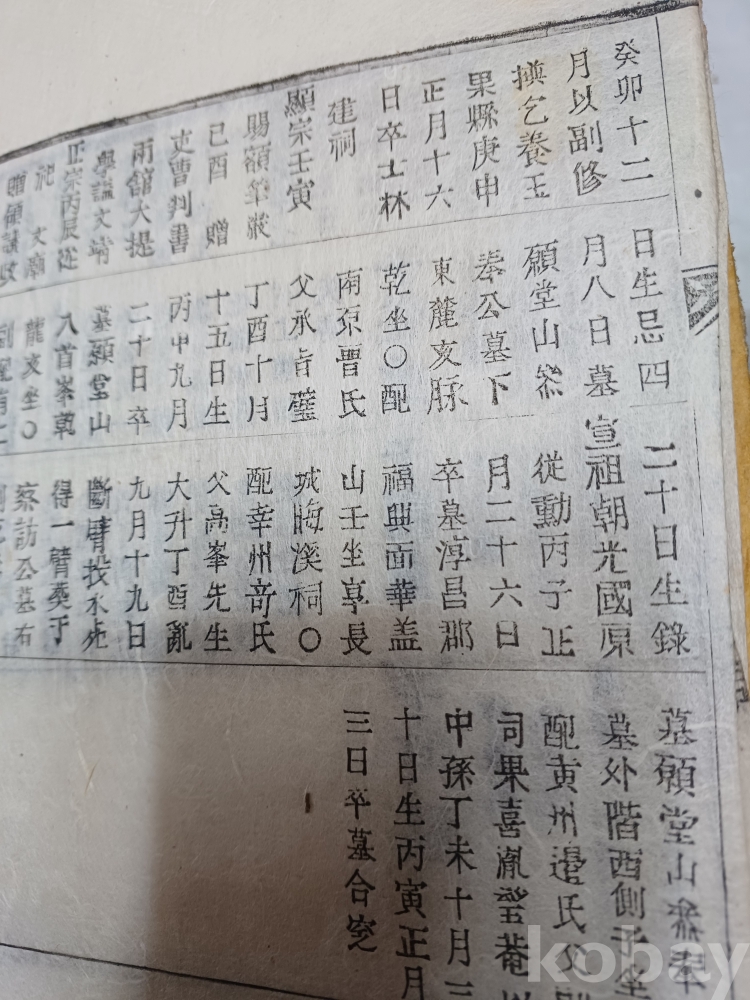 癸卯十二
月以副修
撰乞養玉
果縣庚申
正月十六
日卒士林
建祠
顯宗壬寅
賜額筆巖
己酉 贈
吏曹判書
兩館大提
學諡文靖
正宗丙辰從
祀 文廟
贈領議政
日生忌四
月八日墓
願堂山叅
奉公墓下
東麓亥脉
乾坐○配
南京曺氏
父承旨璧
丁酉十月
十五日生
丙申九月
二十日卒
墓願堂山
八首峯乾
龍亥坐○
二十日生錄
宣祖朝光國原
從勳丙子正
月二十六日
卒墓淳昌郡
福興面華盖
山壬坐享長
城晦溪祠○
配幸州奇氏
父高峯先生
大升丁酉亂
九月十九日
斷臂投水死
得一臂葬于
察訪公墓右
墓願堂山叅奉
墓外階酉側子坐
配黃州邊氏父
司果喜胤望菴以
中孫丁未十月三
十日生丙寅正月
三日卒墓合窆
kobay